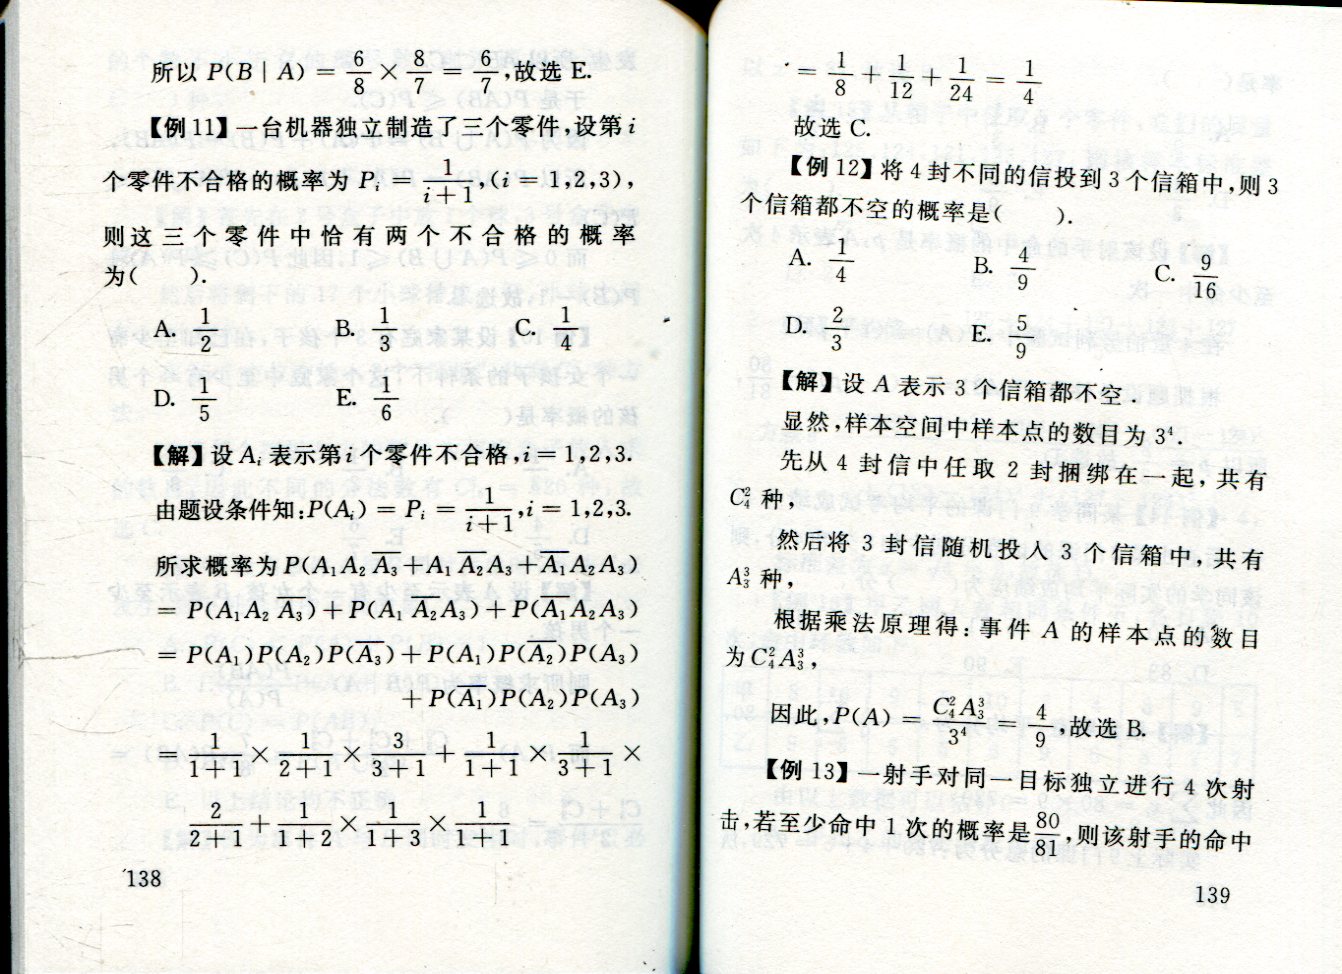 所以 P(B | A) = 6/8 × 8/7 = 6/7,故选 E.
【例 11】一台机器独立制造了三个零件,设第 i
个零件不合格的概率为 Pᵢ = 1/(i+1),(i = 1,2,3),
则这三个零件中恰有两个不合格的概率
为(　　).
A. 1/2　B. 1/3　C. 1/4
D. 1/5　E. 1/6
【解】设 Aᵢ 表示第 i 个零件不合格,i = 1,2,3.
由题设条件知:P(Aᵢ) = Pᵢ = 1/(i+1),i = 1,2,3.
所求概率为 P(A₁A₂A̅₃+A₁A̅₂A₃+A̅₁A₂A₃)
= P(A₁A₂A̅₃)+P(A₁A̅₂A₃)+P(A̅₁A₂A₃)
= P(A₁)P(A₂)P(A̅₃)+P(A₁)P(A̅₂)P(A₃)
+P(A̅₁)P(A₂)P(A₃)
= 1/(1+1) × 1/(2+1) × 3/(3+1) + 1/(1+1) × 1/(3+1) ×
2/(2+1) + 1/(1+2) × 1/(1+3) × 1/(1+1)
138
= 1/8 + 1/12 + 1/24 = 1/4
故选 C.
【例 12】将 4 封不同的信投到 3 个信箱中,则 3
个信箱都不空的概率是(　　).
A. 1/4　B. 4/9　C. 9/16
D. 2/3　E. 5/9
【解】设 A 表示 3 个信箱都不空.
显然,样本空间中样本点的数目为 3⁴.
先从 4 封信中任取 2 封捆绑在一起,共有
C₄² 种,
然后将 3 封信随机投入 3 个信箱中,共有
A₃³ 种,
根据乘法原理得:事件 A 的样本点的数目
为 C₄²A₃³,
因此,P(A) = C₄²A₃³/3⁴ = 4/9,故选 B.
【例 13】一射手对同一目标独立进行 4 次射
击,若至少命中 1 次的概率是 80/81,则该射手的命中
139